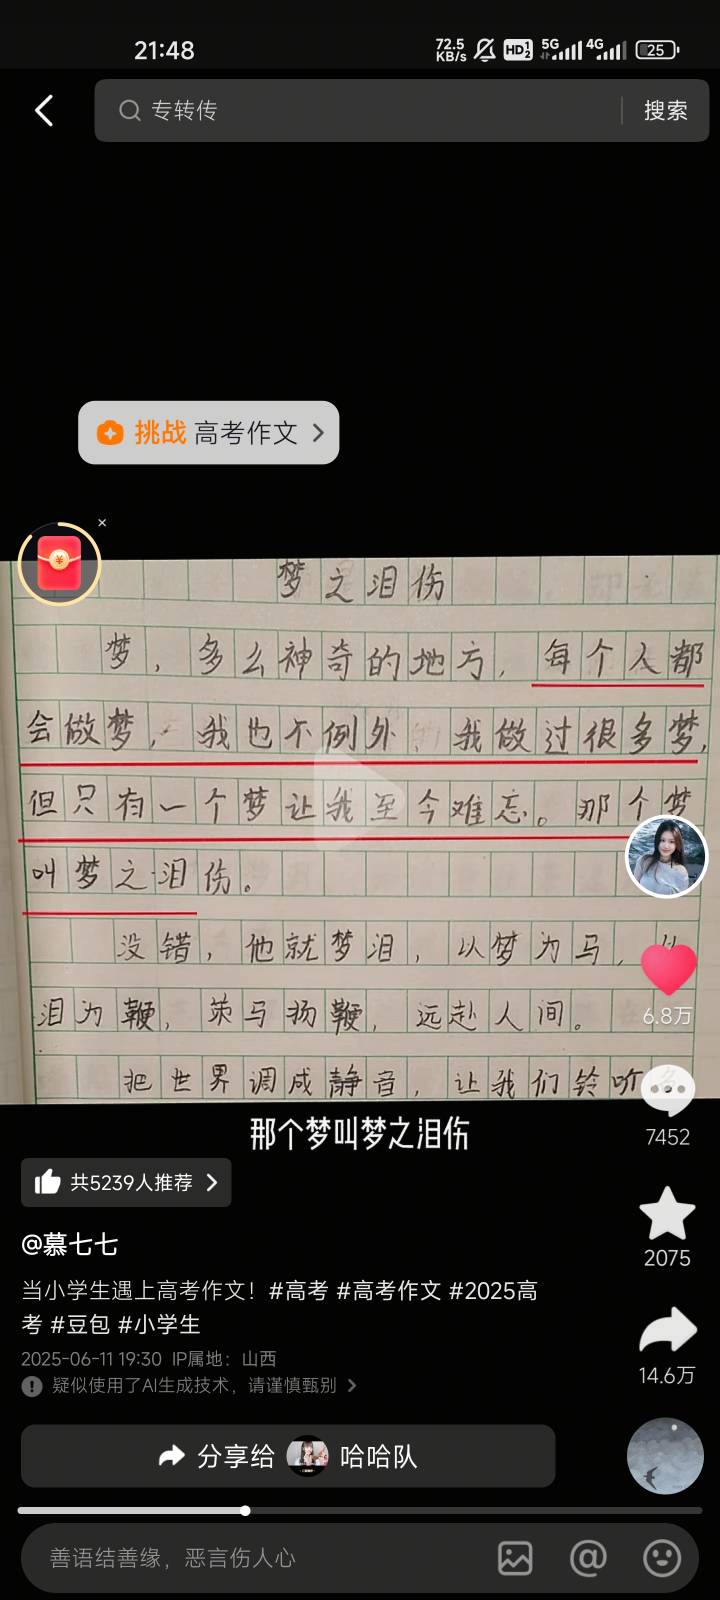 21:48
72.5 KB/s HD 1 2 5G 4G 25
专转传
搜索
挑战 高考作文
梦之泪伤
梦，多么神奇的地方，每个人都
会做梦，我也不例外，我做过很多梦，
但只有一个梦让我至今难忘。那个梦
叫梦之泪伤。
没错，他就梦泪，以梦为马，以
泪为鞭，策马扬鞭，远赴人间。
把世界调成静音，让我们铃听
那个梦叫梦之泪伤
6.8万
7452
2075
14.6万
共5239人推荐
@慕七七
当小学生遇上高考作文！#高考 #高考作文 #2025高
考 #豆包 #小学生
2025-06-11 19:30 IP属地：山西
疑似使用了AI生成技术，请谨慎甄别
分享给 哈哈队
善语结善缘，恶言伤人心